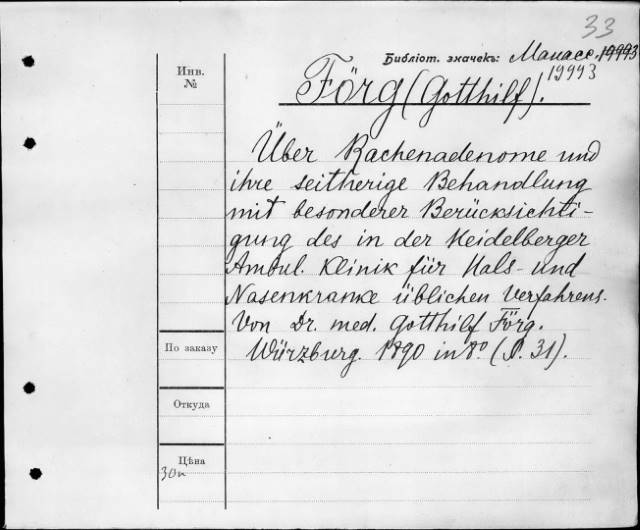 33
Библіот. значекъ: Манасс. 19993
19993
Инв.
№
Förg (Gotthilf).
Über Rachenadenome und
ihre seitherige Behandlung
mit besonderer Berücksichti-
gung des in der Heidelberger
Ambul. Klinik für Hals- und
Nasenkranke üblichen Verfahrens.
Von Dr. med. Gotthilf Förg.
Würzburg. 1890 in 8° (P. 31).
По заказу
Откуда
Цѣна
30к